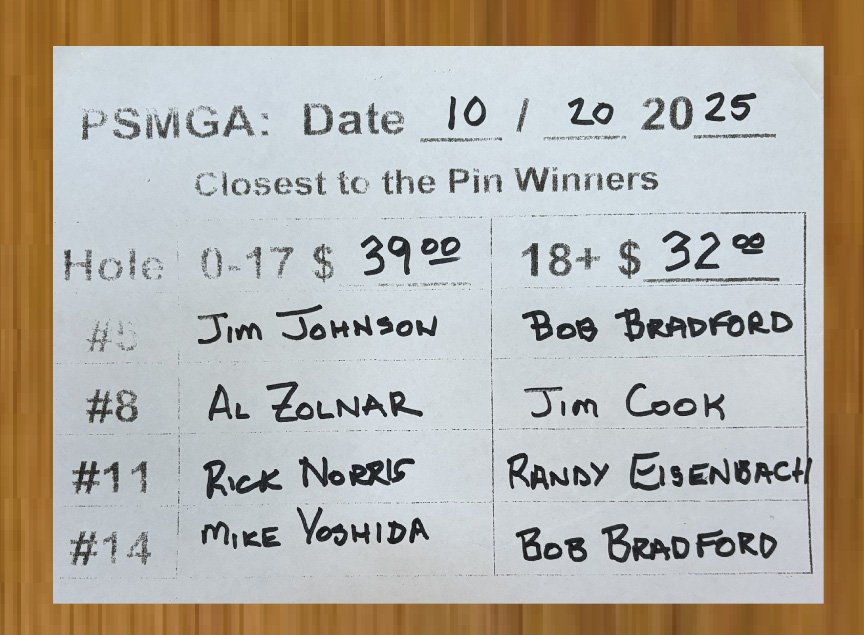 PSMGA: Date 10 / 20 2025
Closest to the Pin Winners
Hole 0-17 $ 39 00 18+ $ 32 00
#5 Jim JOHNSON BOB BRADFORD
#8 AL ZOLNAR Jim COOK
#11 RICK NORRIS RANDY EISENBACH
#14 MIKE YOSHIDA BOB BRADFORD